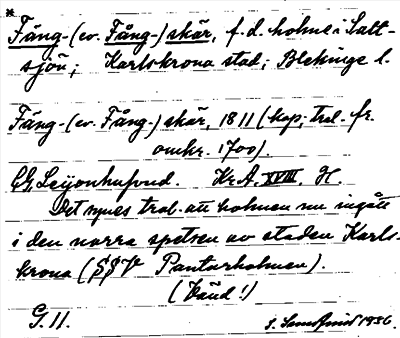 *
Fäng- (ev. Fång-) skär, f.d. holme i Salt-
sjön; Karlskrona stad; Blekinge l.
Fäng- (ev. Fång-) skär, 1811 (kop; trol. fr.
omkr. 1700).
CG. Leijonhufvud. Kr.A. XVIII. H.
Det synes trol. att holmen nu ingått
i den norra spetsen av staden Karls-
krona (SSV Pantarholmen).
(Känd!)
G. 11.
1936.